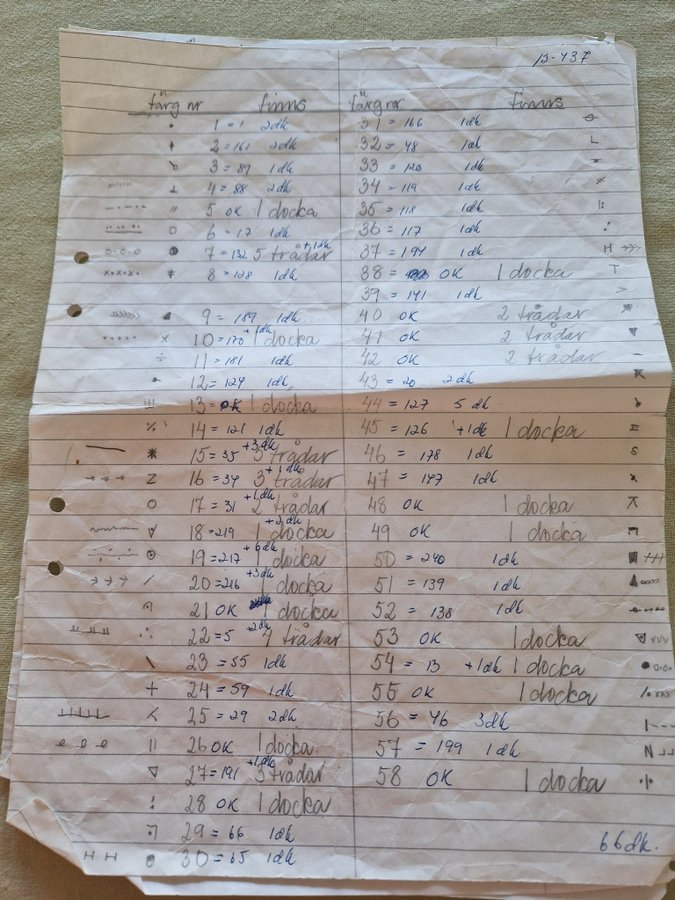 B-437
färg nr finns
1 = 1 2dk
2 = 161 2dk
3 = 89 1dk
4 = 88 2dk
5 OK 1 docka
6 = 17 1dk
7 = 132 5 trådar +1dk
8 = 128 1dk
9 = 189 1dk
10 = 170 +1dk 1 docka
11 = 181 1dk
12 = 124 1dk
13 = OK 1 docka
14 = 121 1dk
15 = 35 +3dk 3 trådar
16 = 34 3 +1dk trådar
17 = 31 +1dk 2 trådar
18 = 219 +2dk 1 docka
19 = 217 +6dk 1 docka
20 = 216 +3dk 1 docka
21 OK 1 docka
22 = 5 +2dk 4 trådar
23 = 55 1dk
24 = 59 1dk
25 = 29 2dk
26 OK 1 docka
27 = 191 +1dk 3 trådar
28 OK 1 docka
29 = 66 1dk
30 = 65 1dk
färg nr finns
31 = 166 1dk
32 = 48 1dk
33 = 120 1dk
34 = 119 1dk
35 = 118 1dk
36 = 117 1dk
37 = 194 1dk
38 = OK 1 docka
39 = 141 1dk
40 OK 2 trådar
41 OK 2 trådar
42 OK 2 trådar
43 = 20 2dk
44 = 127 5 dk
45 = 126 +1dk 1 docka
46 = 178 1dk
47 = 147 1dk
48 OK 1 docka
49 OK 1 docka
50 = 240 1dk
51 = 139 1dk
52 = 138 1dk
53 OK 1 docka
54 = 13 +1dk 1 docka
55 OK 1 docka
56 = 46 3dk
57 = 199 1dk
58 OK 1 docka
66dk.